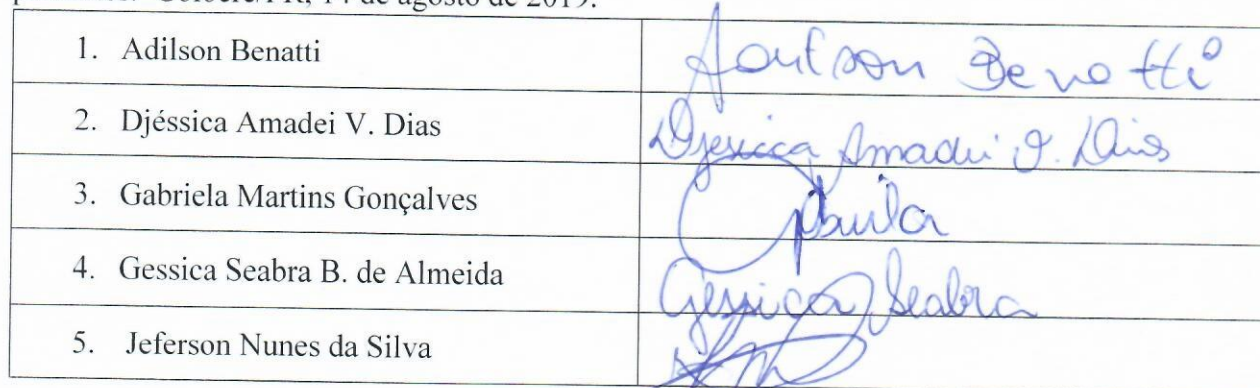 14 de agosto de 2019.
1. Adilson Benatti
Adilson Benatti
2. Djéssica Amadei V. Dias
Djessica Amadei V. Dias
3. Gabriela Martins Gonçalves
4. Gessica Seabra B. de Almeida
Gessica Seabra
5. Jeferson Nunes da Silva